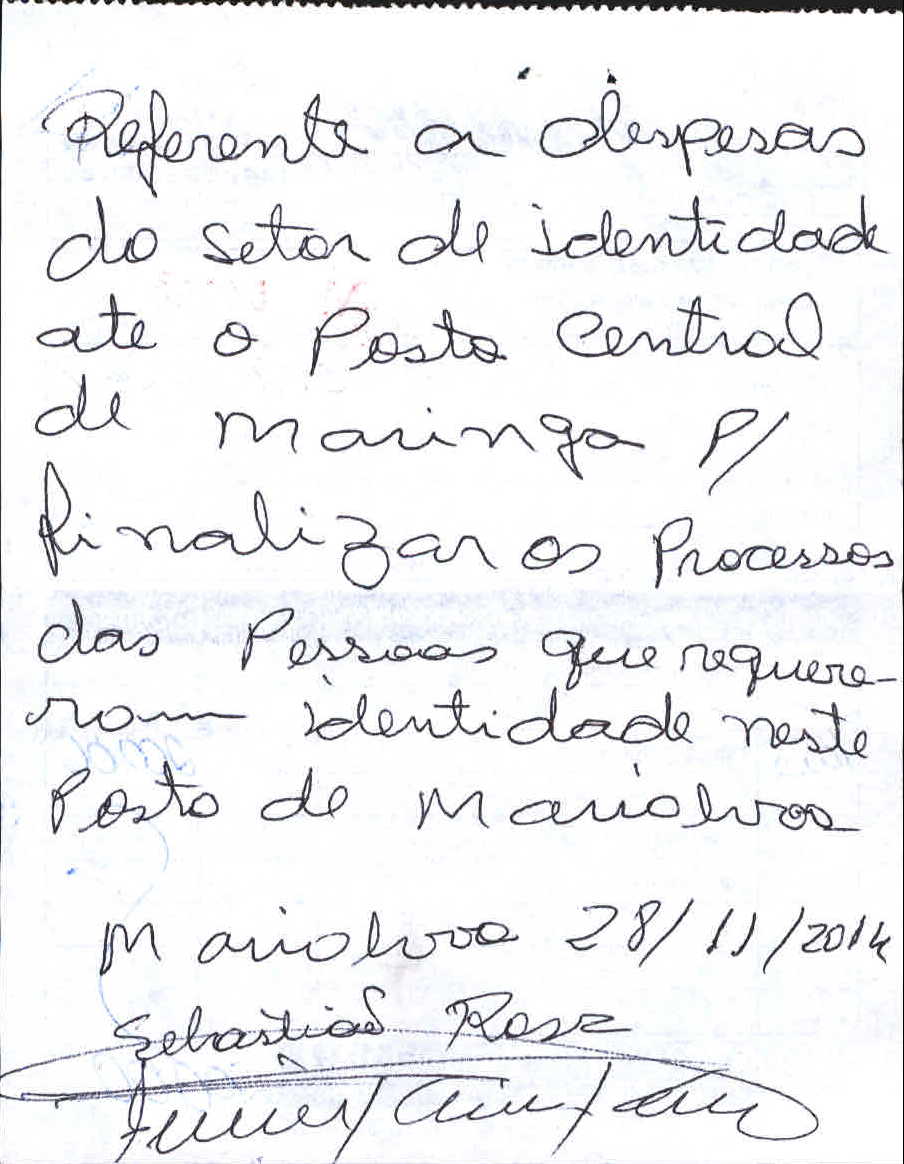 Referente a despesas
do setor de identidade
ate o Posto Central
de Maringa P/
finalizar os Processos
das Pessoas que requere-
ram identidade neste
Posto de Marialvas
Marialva 28/11/2014
Sebastião Rosa